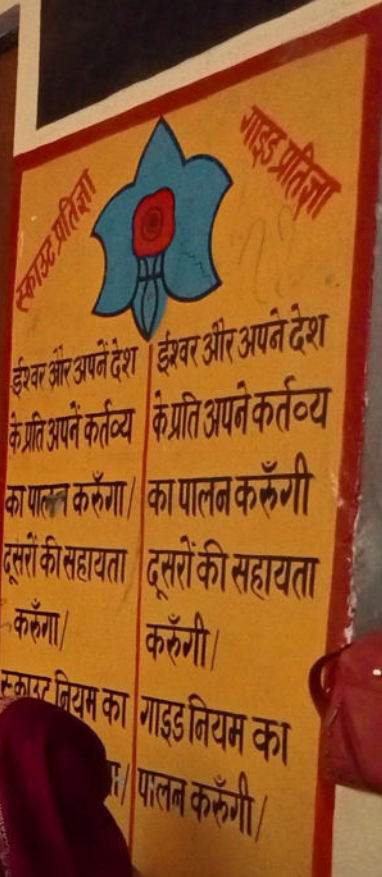 स्काउट प्रतिज्ञा
ईश्वर और अपनें देश
के प्रति अपनें कर्तव्य
का पालन करुँगा/
दूसरों की सहायता
करुँगा/
स्काउट नियम का
गाइड प्रतिज्ञा
ईश्वर और अपने देश
के प्रति अपने कर्तव्य
का पालन करुँगी
दूसरों की सहायता
करुँगी/
गाइड नियम का
पालन करुँगी/